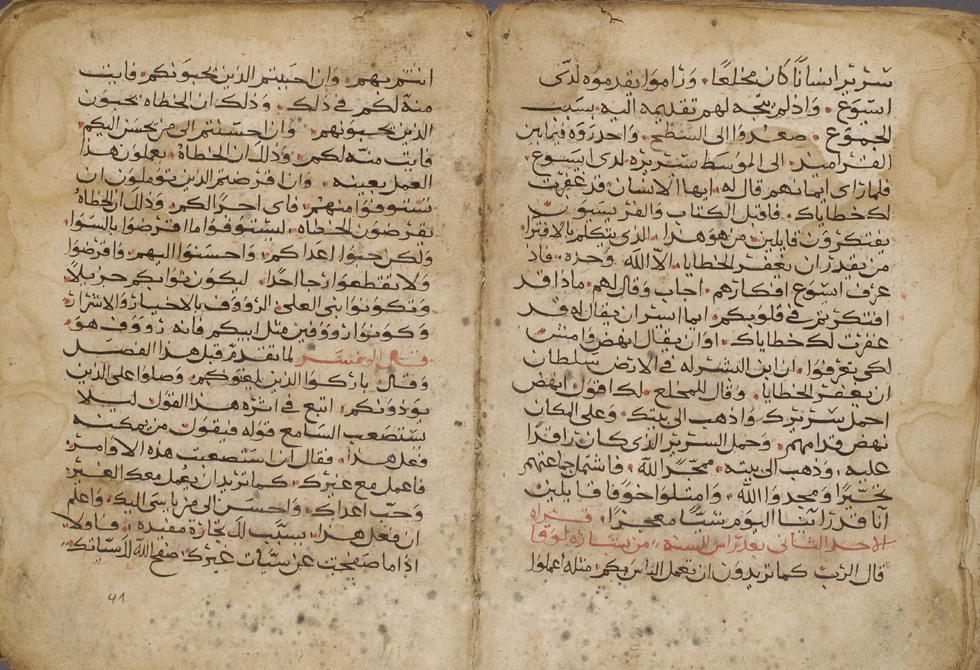 سرير انسانا كان مخلعا. وراموا يقدموه لدى
اسوع. واذ لم يتجه لهم تقديمه اليه بسبب
الجموع. صعدوا الى السطح. واحدروه فيما بين
القراميد. الى الموسط سريره لدى ايسوع.
فلما راى ايمانهم قال له ايها الانسان قد غفرت
لك خطاياك. فاقبل الكتاب والفريسيون
يفتكرون قايلين من هو هذا الذي يتكلم بالافترا
من يقدر ان يغفر الخطايا. الا الله وحده. فاذ
عرف اسوع افكارهم. اجاب وقال لهم ماذا قد
افتكرتم في قلوبكم. ايما ايسر ان يقال له قد
غفرت لك خطاياك. او ان يقال انهض وامش
لكي تعرفوا. ان ابن البشر له في الارض سلطان
ان يغفر الخطايا. وقال للمخلع. لك اقول انهض
احمل سريرك واذهب الى بيتك. وعلى المكان
نهض قدامهم. وحمل السرير الذي كان راقدا
عليه. وذهب الى بيته. ممجدا الله. فاشتمل جماعتهم
تحيرا ومجدوا الله. وامتلوا خوفا قايلين
اننا قد راينا اليوم شيا معجزا. قراه
الاحد الثاني بعد راس السنه من بشاره لوقا
قال الرب كما تريدون ان يعمل الناس بكم مثله اعملوا
انتم بهم. وان احببتم الذين يحبونكم. فايت
منة لكم في ذلك. وذلك ان الخطاه يحبون
الذين يحبونهم. وان احسنتم الى من يحسن اليكم
فايت منه لكم. وذلك ان الخطاة. يعملون هذا
العمل بعينه. وان قرضتم الذين توملون ان
تستوفوا منهم. فاى اجر لكم. وذلك ان الخطاه
يقرضون الخطاه. ليستوفوا ما اقرضوا بالسوا.
ولكن حبوا اعداكم. واحسنوا اليهم. واقرضوا
ولا تقطعوا رجا احدا. ليكون ثوابكم جزيلا
وتكونوا بني العلي. الرووف بالاخيار والاشرار
وكونوا رووفين مثل ابيكم فانه رووف هو.
قال المفسر لما تقدم قبل هذا الفصل
وقال باركوا الذين يلعنوكم. وصلوا على الذين
يوذونكم. اتبع في اثره هذا القول ليلا
يستصعب السامع قوله فيقول. من يمكنه
فعل هذا. فقال ان استصعبت هذه الاوامر.
فاعمل مع غيرك. كما تريد ان يعمل معك الغير.
وحب اعداك. واحسن الى من ياسى اليك. واعلم
ان فعل هذا. يسبب لك تجارة مفيده. فاولا
اذا ما صفحت عن سيات غيرك. صفح الله لاسااتك
41